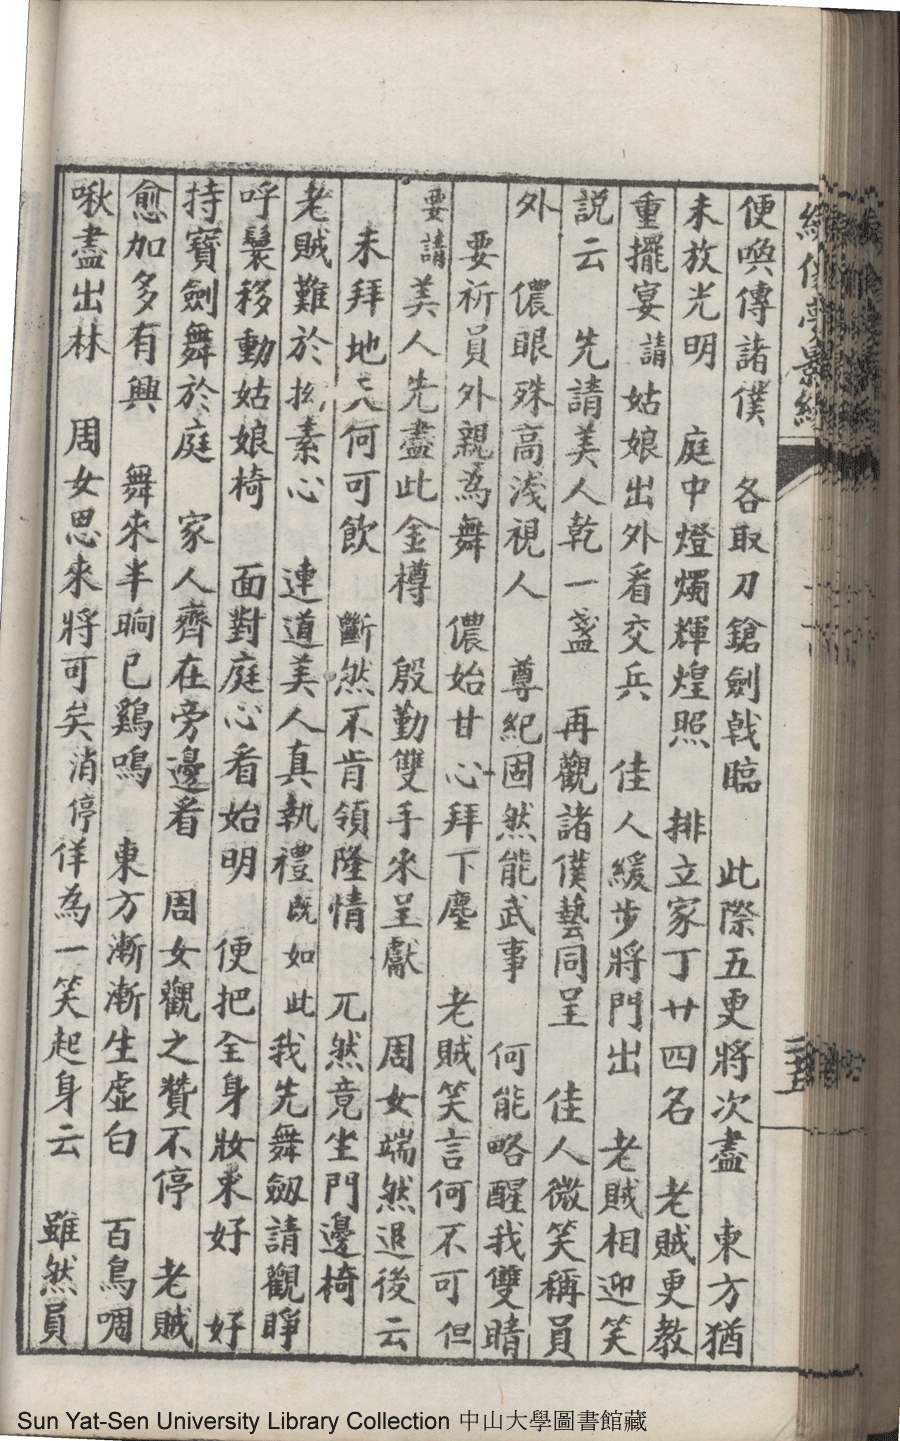 便喚傳諸僕　各取刀鎗劍戟臨　此際五更將次盡　東方猶
未放光明　庭中燈燭輝煌照　排立家丁廿四名　老賊更教
重擺宴請姑娘出外看交兵　佳人緩步將門出　老賊相迎笑
説云　先請美人乾一盞　再觀諸僕藝同呈　佳人微笑稱員
外　儂眼殊高淺視人　尊紀固然能武事　何能略醒我雙睛
要祈員外親為舞　儂始甘心拜下塵　老賊笑言何不可　但
要請美人先盡此金樽　殷勤雙手來呈獻　周女端然退後云
未拜地天何可飲　斷然不肯領隆情　兀然竟坐門邊椅
老賊難於拗素心　連道美人真執禮既如此我先舞劔請觀睜
呼鬟移動姑娘椅　面對庭心看始明　便把全身妝束好　好
持寶劍舞於庭　家人齊在旁邊看　周女觀之贊不停　老賊
愈加多有興　舞來半晌已鷄鳴　東方漸漸生虛白　百鳥啁
啾盡出林　周女思來將可矣消停佯為一笑起身云　雖然員
三十五
Sun Yat-Sen University Library Collection 中山大學圖書館藏